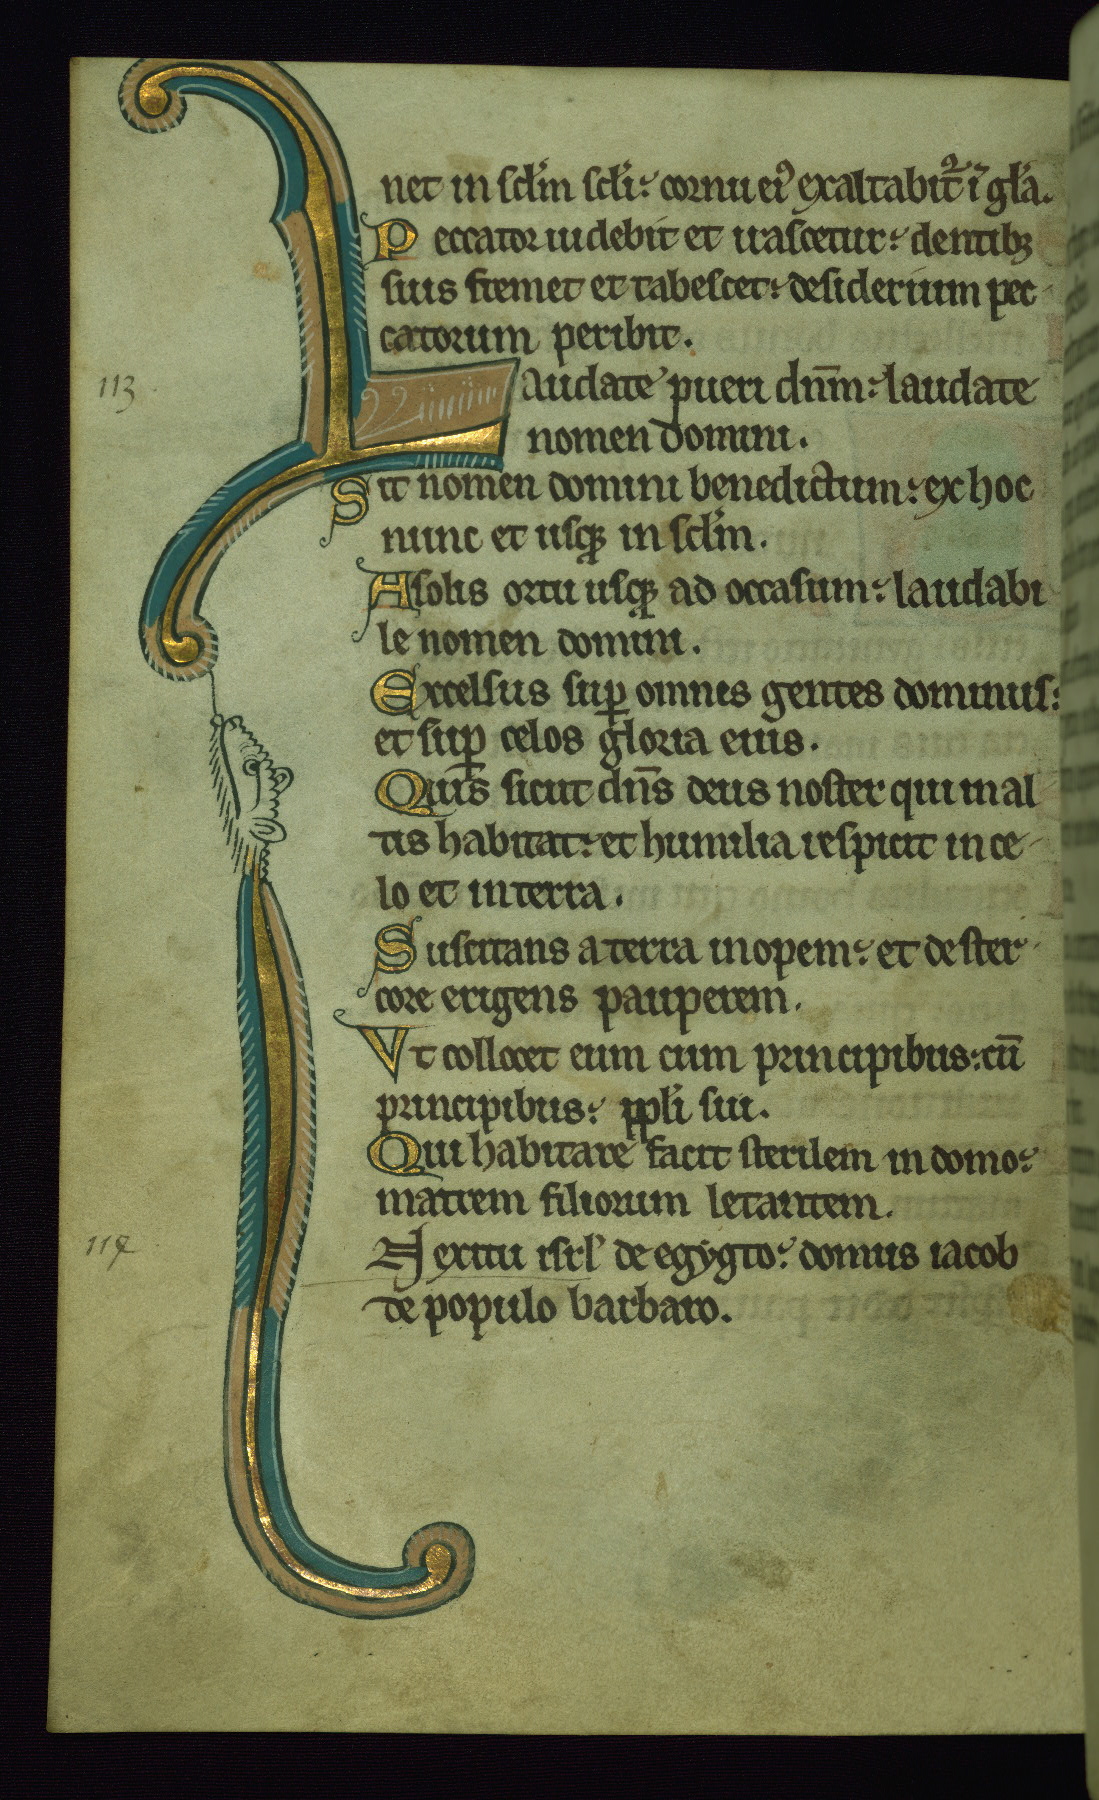 net in sclm scli: cornu ei9 exaltabit̃ ĩ gla.
Peccator uidebit et irascetur: dentib3
suis fremet et tabescet: desiderium pec
catorum peribit.
113
Laudate pueri dnm: laudate
nomen domini.
Sit nomen domini benedictum: ex hoc
nunc et usq̨ in sclm.
A solis ortu usq̨ ad occasum: laudabi
le nomen domini.
Excelsus sup̱ omnes gentes dominus:
et sup̱ celos gloria eius.
Quis sicut dns deus noster qui in al
tis habitat: et humilia respicit in ce
lo et in terra.
Suscitans a terra inopem: et de ster
core erigens pauperem.
Vt collocet eum cum principibus: cū
principibus: ppli sui.
Qui habitare facit sterilem in domo:
matrem filiorum letantem.
114
In exitu isrl de egypto: domus iacob
de populo barbaro.